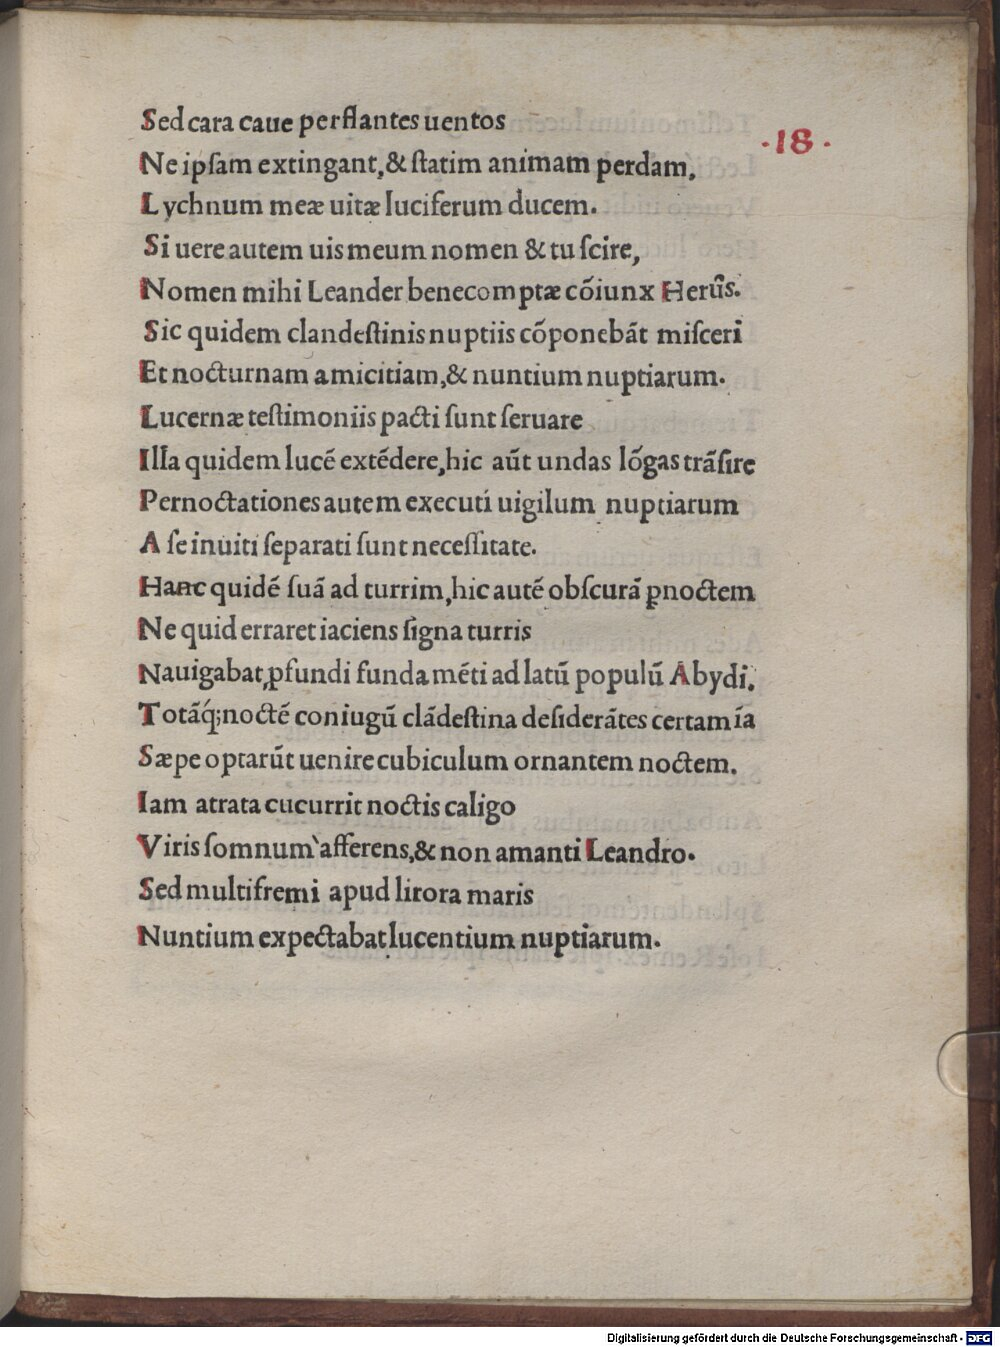 Sed cara caue perflantes uentos
·18·
Ne ipſam extingant,& ſtatim animam perdam.
Lychnum meæ uitæ luciferum ducem.
Si uere autem uis meum nomen & tu ſcire,
Nomen mihi Leander bene comptæ cõiunx Herũs.
Sic quidem clandeſtinis nuptiis cõponebãt miſceri
Et nocturnam amicitiam,& nuntium nuptiarum.
Lucernæ teſtimoniis pacti ſunt ſeruare
Illa quidem lucẽ extẽdere,hic aũt undas lõgas trãſire
Pernoctationes autem executi uigilum nuptiarum
A ſe inuiti ſeparati ſunt neceſſitate.
Hanc quidẽ ſuã ad turrim,hic autẽ obſcurã ꝑnoctem
Ne quid erraret iaciens ſigna turris
Nauigabat,ꝓfundi fundamẽti ad latũ populũ Abydi.
Totãq̃;noctẽ coniugũ clãdeſtina deſiderãtes certamĩa
Sæpe optarũt uenire cubiculum ornantem noctem.
Iam atrata cucurrit noctis caligo
Viris ſomnum afferens,& non amanti Leandro.
Sed multifremi apud litora maris
Nuntium expectabat lucentium nuptiarum.
Digitalisierung gefördert durch die Deutsche Forschungsgemeinschaft - DFG